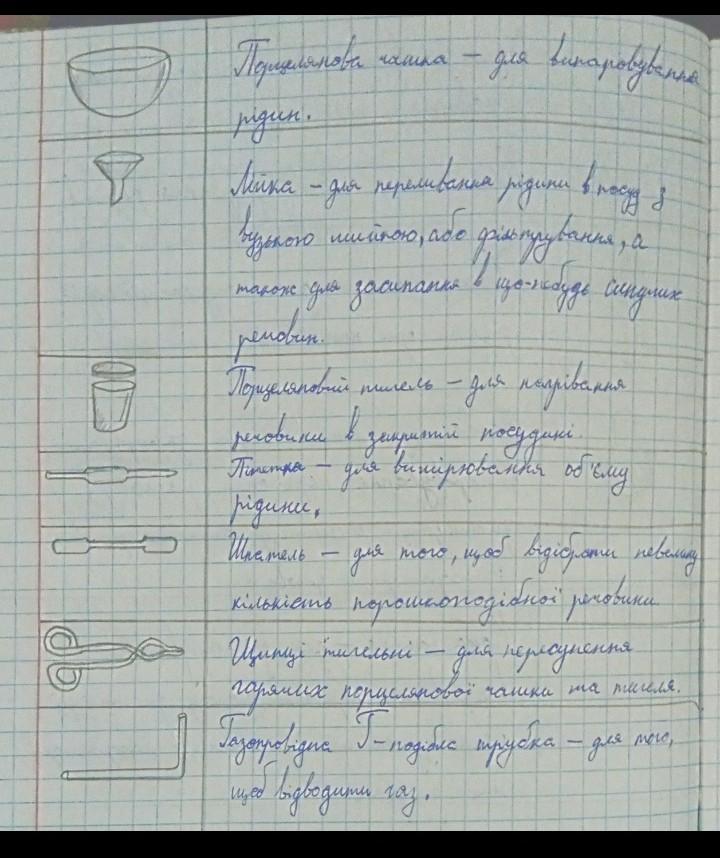 Порцелянова чашка – для випаровування
рідин.
Лійка – для переливання рідини в посуд з
вузькою шийкою, або фільтрування, а
також для засипання в що-небудь сипучих
речовин.
Порцеляновий тигель – для нагрівання
речовини в закритій посудині.
Піпетка – для вимірювання об'єму
рідини.
Шпатель – для того, щоб відібрати невелику
кількість порошкоподібної речовини
Щипці тигельні – для пересунення
гарячих порцелянової чашки та тигеля.
Газопровідна Г-подібна трубка – для того,
щоб відводити газ.